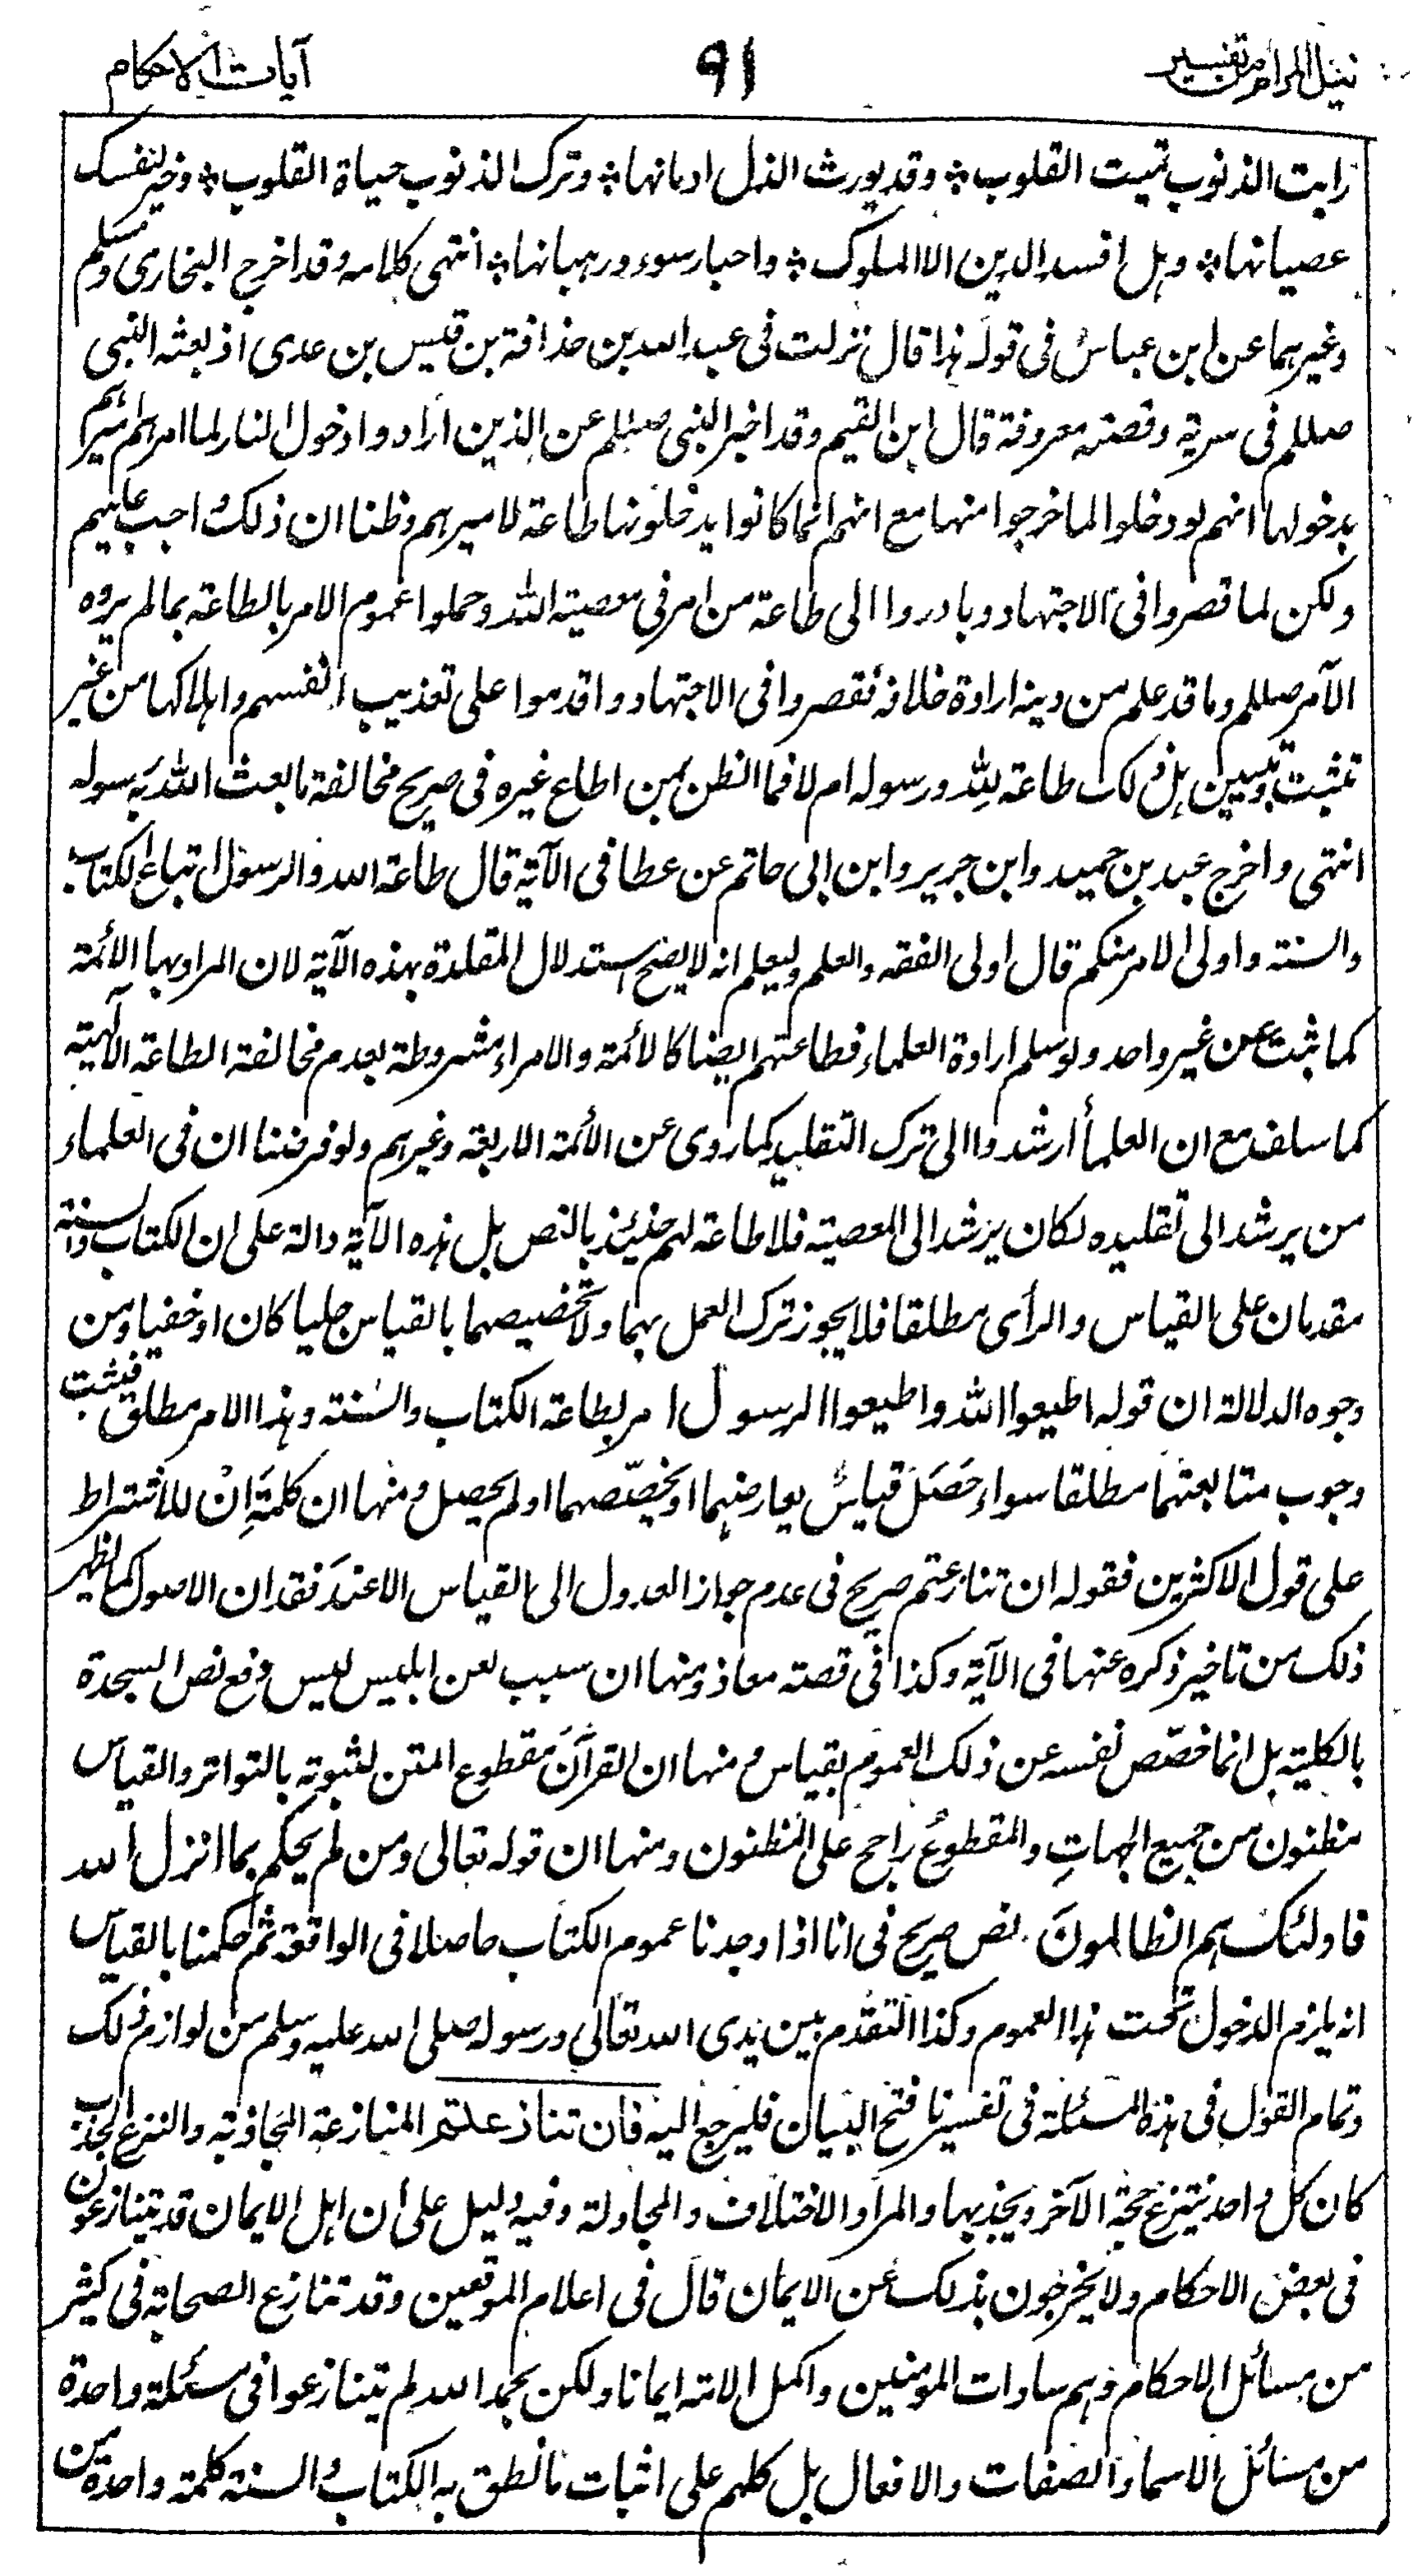 نيل المرام من تفسير
٩١
آيات الاحكام
رايت الذنوب تميت القلوب ۞ وقد يورث الذل ادمانها ۞ وترك الذنوب حياة القلوب ۞ وخير لنفسك
عصيانها ۞ وهل افسد الدين الا الملوك ۞ واحبار سوء ورهبانها ۞ انتهى كلامه وقد اخرج البخاري ومسلم
وغيرهما عن ابن عباس في قوله هذا قال نزلت في عبد الله بن حذافة بن قيس بن عدي اذ بعثه النبي
صللم في سرية وقصته معروفة قال ابن القيم وقد اخبر النبي صللم عن الذين ارادوا دخول النار لما امرهم اميرهم
بدخولها انهم لو دخلوا لما خرجوا منها مع انهم انما كانوا يدخلونها طاعة لاميرهم وظنا ان ذلك واجب عليهم
ولكن لما قصروا في الاجتهاد وبادروا الى طاعة من امر في معصية الله وحملوا عموم الامر بالطاعة بما لم يرده
الآمر صللم وما قد علم من دينه ارادة خلافه فقصروا في الاجتهاد واقدموا على تعذيب انفسهم واهلاكها من غير
تثبت وتبيين هل ذلك طاعة لله ورسوله ام لا فما الظن بمن اطاع غيره في صريح مخالفة ما بعث الله به رسوله
انتهى واخرج عبد بن حميد وابن جرير وابن ابي حاتم عن عطا في الآية قال طاعة الله والرسول اتباع الكتاب
والسنة واولى الامر منكم قال اولى الفقه والعلم وليعلم انه لا يصح استدلال المقلدة بهذه الآية لان المراد بها الأئمة
كما ثبت عن غير واحد ولو سلم ارادة العلماء فطاعتهم ايضا كالأئمة والامراء مشروطة بعدم مخالفة الطاعة الالٰهية
كما سلف مع ان العلمأ ارشدوا الى ترك التقليد كما روى عن الأئمة الاربعة وغيرهم ولو فرضنا ان في العلماء
من يرشد الى تقليده لكان يرشد الى المعصية فلا طاعة لهم حينئذ بالنص بل هذه الآية دالة على ان الكتاب والسنة
مقدمان على القياس والرأى مطلقا فلا يجوز ترك العمل بهما ولا تخصيصهما بالقياس جليا كان او خفيا ومن
وجوه الدلالة ان قوله اطيعوا الله واطيعوا الرسول امر بطاعة الكتاب والسنة وهذا الامر مطلق فيثبت
وجوب متابعتهما مطلقا سواء حَصَلَ قياسٌ يعارضهما او يخصّصهما او لم يحصل ومنها ان كلمة اِنْ للاشتراط
على قول الاكثرين فقوله ان تنازعتم صريح في عدم جواز العدول الى القياس الا عند فقدان الاصول كما يظهر
ذلك من تاخير ذكره عنها في الآية وكذا في قصة معاذ ومنها ان سبب لعن ابليس ليس دفع نص السجدة
بالكلية بل انما خصّص نفسه عن ذلك العموم بقياس ومنها ان القرآن مقطوع المتن لثبوته بالتواتر والقياس
مظنون من جميع الجهاتِ والمقطوعُ راجح على المظنون ومنها ان قوله تعالى ومن لم يحكم بما انزل الله
فاولئك هم الظالمونَ نص صريح في انا اذا وجدنا عموم الكتاب حاصلا في الواقعة ثم حكمنا بالقياس
انه يلزم الدخول تحت هذا العموم وكذا التقدم بين يدى الله تعالى ورسوله صلى الله عليه وسلم من لوازم ذلك
وتمام القول في هذه المسئلة في تفسيرنا فتح البيان فليرجع اليه فان تنازعتم المنازعة المجاذبة والنزع الجذب
كان كل واحد ينتزع حجة الآخر ويجذبها والمراد الاختلاف والمجادلة وفيه دليل على ان اهل الايمان قد يتنازعون
في بعض الاحكام ولا يخرجون بذلك عن الايمان قال في اعلام الموقعين وقد تنازع الصحابة في كثير
من مسائل الاحكام وهم سادات المومنين واكمل الامة ايمانا ولكن بحمد الله لم يتنازعوا في مسئلة واحدة
من مسائل الاسماء والصفات والافعال بل كلهم على اثبات ما نطق به الكتاب والسنة كلمة واحدة من